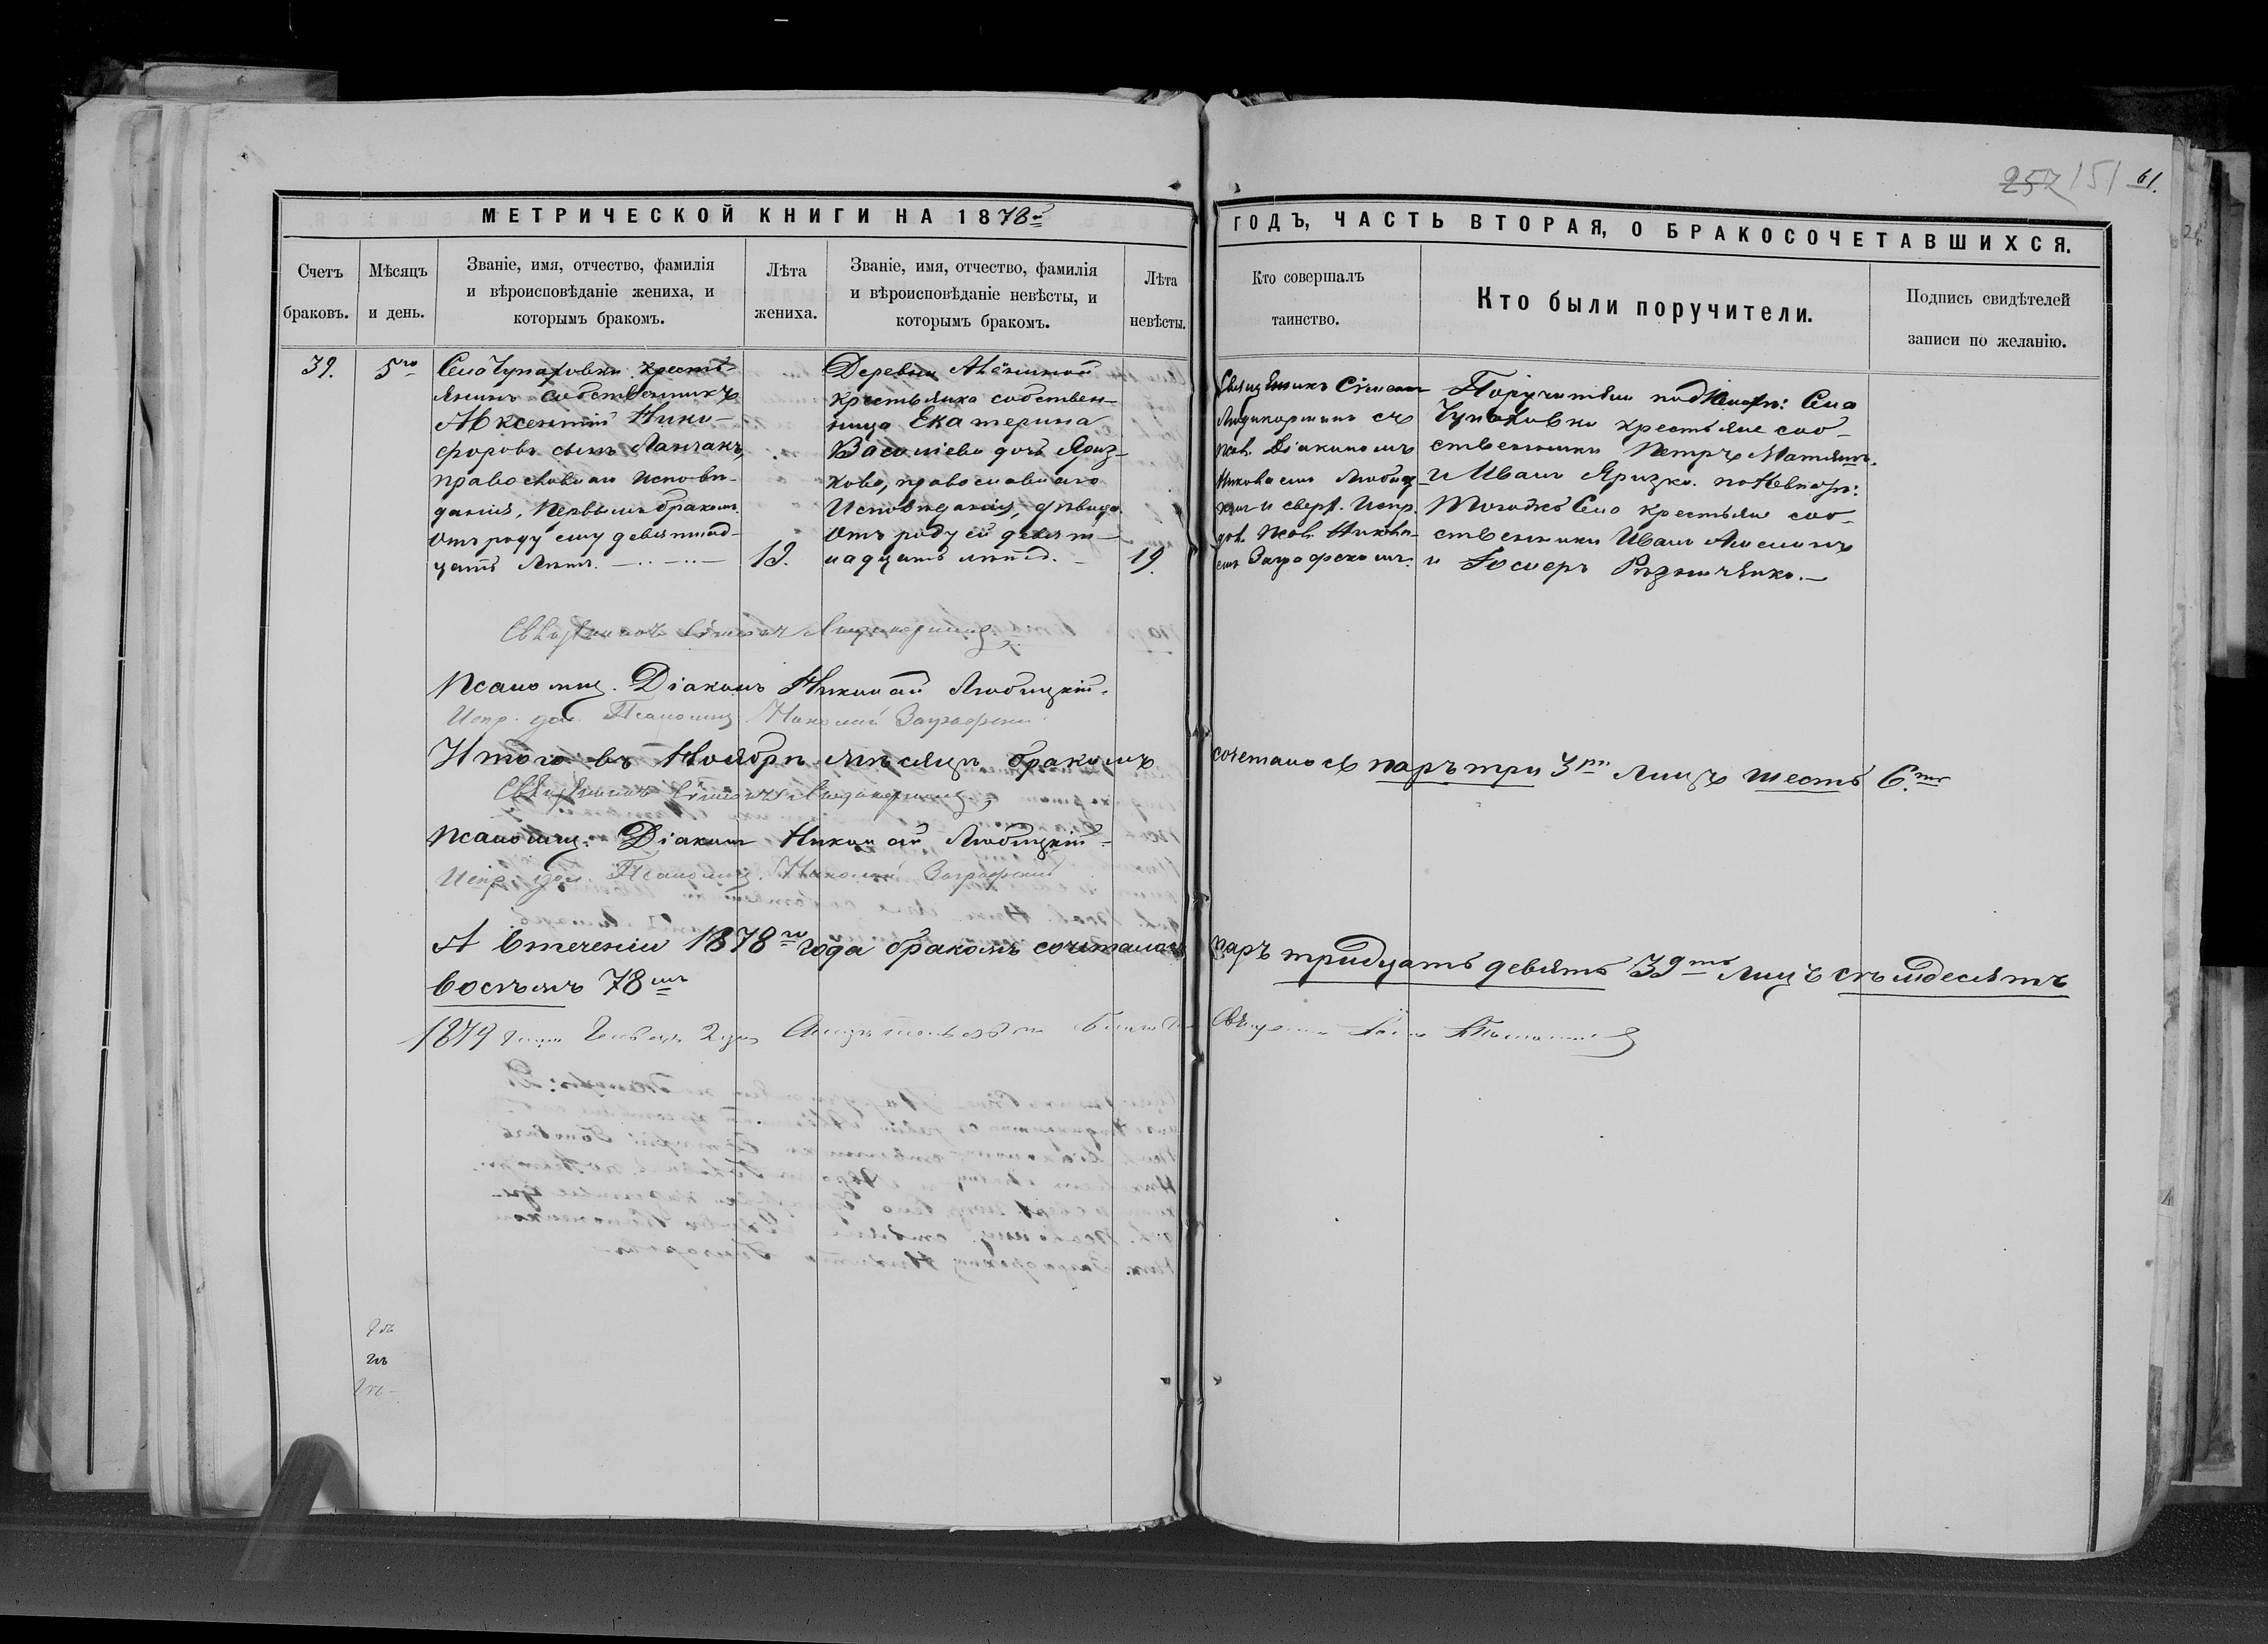 257 151 61.
МЕТРИЧЕСКОЙ КНИГИ НА 1878й
ГОДЪ, ЧАСТЬ ВТОРАЯ, О БРАКОСОЧЕТАВШИХСЯ.
Счетъ браковъ.
Мѣсяцъ и день.
Званіе, имя, отчество, фамилія
и вѣроисповѣданіе жениха, и
которымъ бракомъ.
Лѣта жениха.
Званіе, имя, отчество, фамилія
и вѣроисповѣданіе невѣсты, и
которымъ бракомъ.
Лѣта невѣсты.
Кто совершалъ
таинство.
Кто были поручители.
Подпись свидѣтелей
записи по желанію.
39.
5го
Села Чупаховки кресть-
янинъ собственникъ
Аксентій Ники-
форовъ сынъ Ланчакъ,
православнаго исповѣ-
данія, первымъ бракомъ.
Отъ роду ему девятнад-
цать лѣтъ.
19.
Деревни
крестьянка собствен-
ница Екатерина
Василіева дочь Яриз-
кова, православнаго
исповѣданія, дѣвица
Отъ роду ей девят-
надцать лѣтъ.
19.
Священникъ Сімеонъ
съ
псал. Діакономъ
Николаемъ Любиц-
кимъ и сверх. испр.
дол. псал. Никола-
емъ Заграфскимъ.
Поручители по жених: Села
Чупаховки крестьяне соб-
ственники Петръ
и Иванъ Яризко. по невѣстѣ:
Тогожъ Села крестьяне соб-
ственники Иванъ
и
Священникъ Сімеонъ
Псаломщ. Діаконъ Николай Любицкій.
Испр. дол. Псаломщ. Николай Заграфскій
Итого въ Ноябрѣ мѣсяцѣ бракомъ сочеталось паръ три 3ри лицъ шесть 6.ть
Священникъ Сімеонъ
Псаломщ. Діаконъ Николай Любицкій
Испр. дол. Псаломщ. Николай Заграфскій
А втеченіи 1878го года бракомъ сочеталось паръ тридцать девять 39ть лицъ семдесятъ
восемъ 78мъ
1879 года